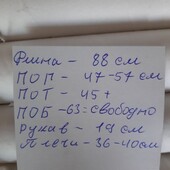 Длина - 88 см
ПОП - 47-57 см
ПОТ - 45+
ПОБ - 63: свободно
Рукав - 19 см
Плечи - 36-40 см